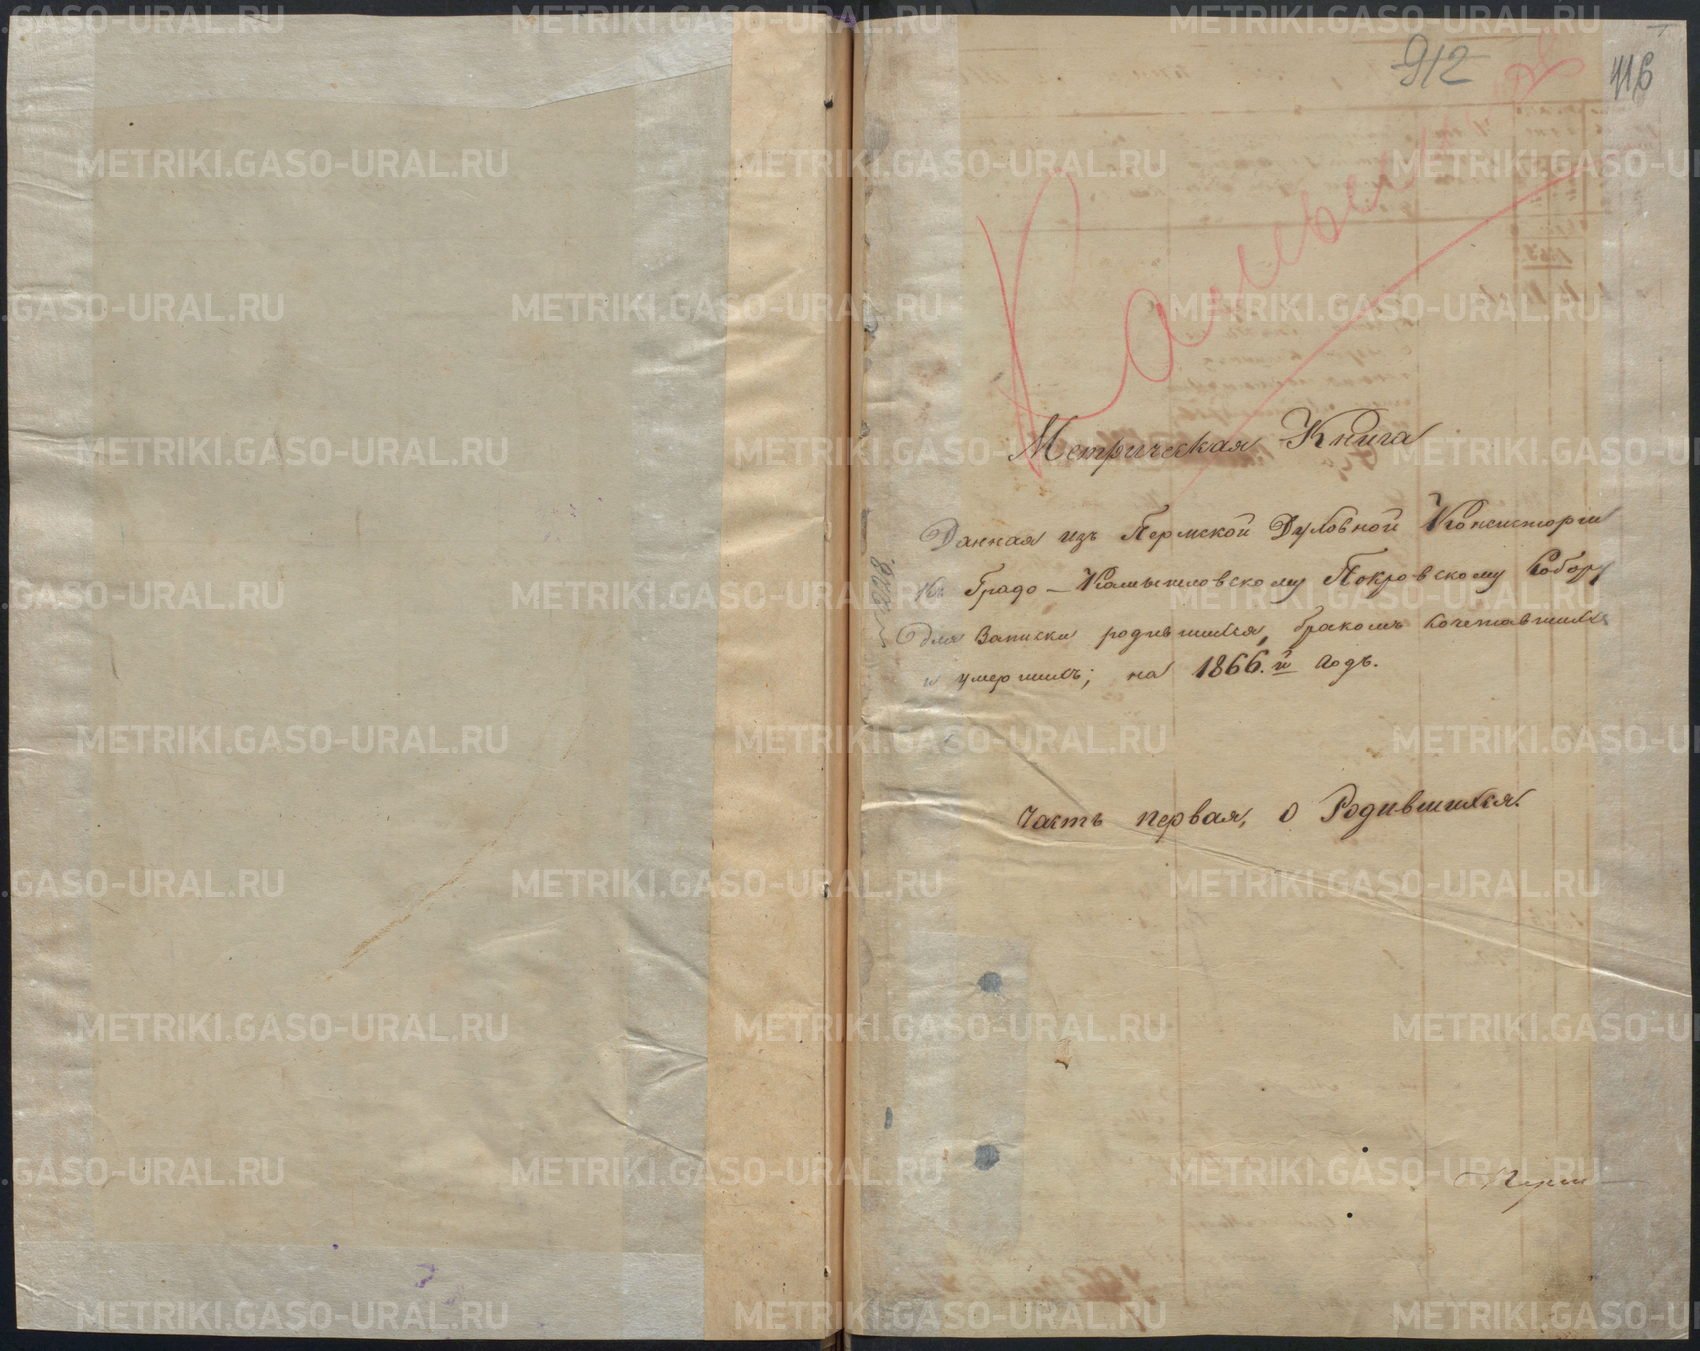 912
116
Метрическая Книга
Данная изъ Пермской Духовной Консисторіи
къ Градо-Камышловскому Покровскому Собору
для записки родившихся, бракомъ сочетавшихся
и умершихъ; на 1866.й годъ.
Часть первая, о Родившихся.
METRIKI.GASO-URAL.RU